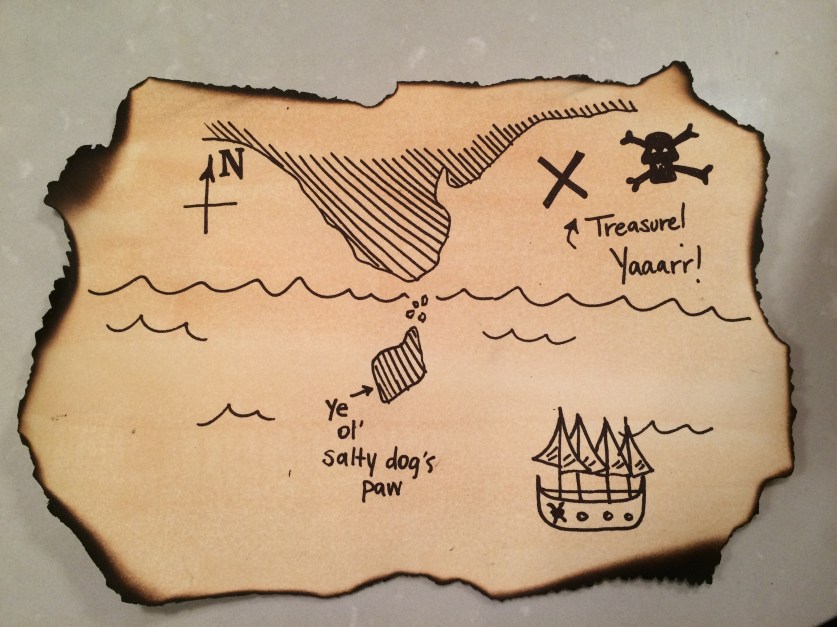 N
Treasure!
Yaaarr!
Ye
ol'
salty dog's
paw